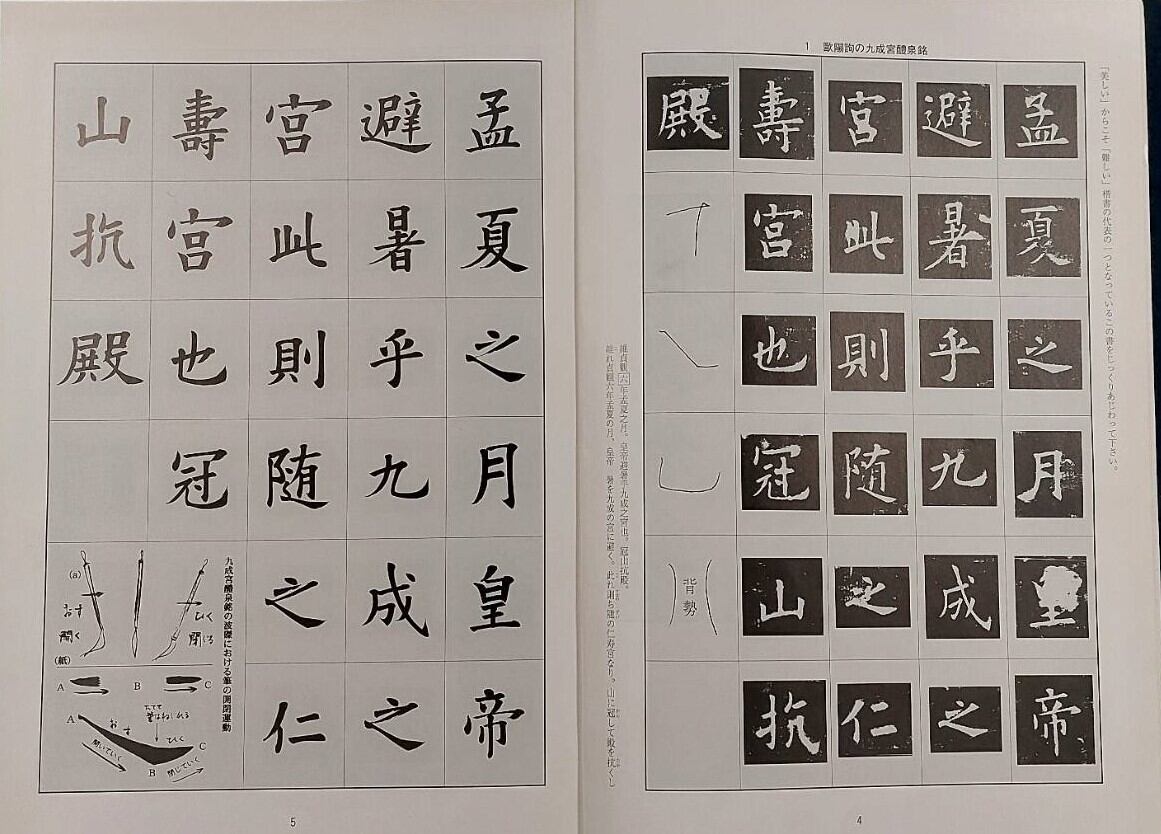 1 歐陽詢の九成宮醴泉銘
「美しい」からこそ「難しい」楷書の代表の一つとなっているこの書をじっくりあじわって下さい。
孟夏之月皇帝
避暑乎九成之
宮此則随之仁
壽宮也冠山抗
殿
背勢
維貞観六年孟夏之月。皇帝避暑乎九成之宮也。冠山抗殿。
維れ貞観六年孟夏の月、皇帝 暑を九成の宮に避く。此れ則ち随の仁寿宮なり。山に冠して殿を抗くし
4
孟夏之月皇帝
避暑乎九成之
宮此則随之仁
壽宮也冠
山抗殿
九成宮醴泉銘の波磔における筆の開閉運動
(a)
おす
開く
ひく
閉じる
(紙)
A B C
A おす
ひく C
開いていく B 閉じていく
5